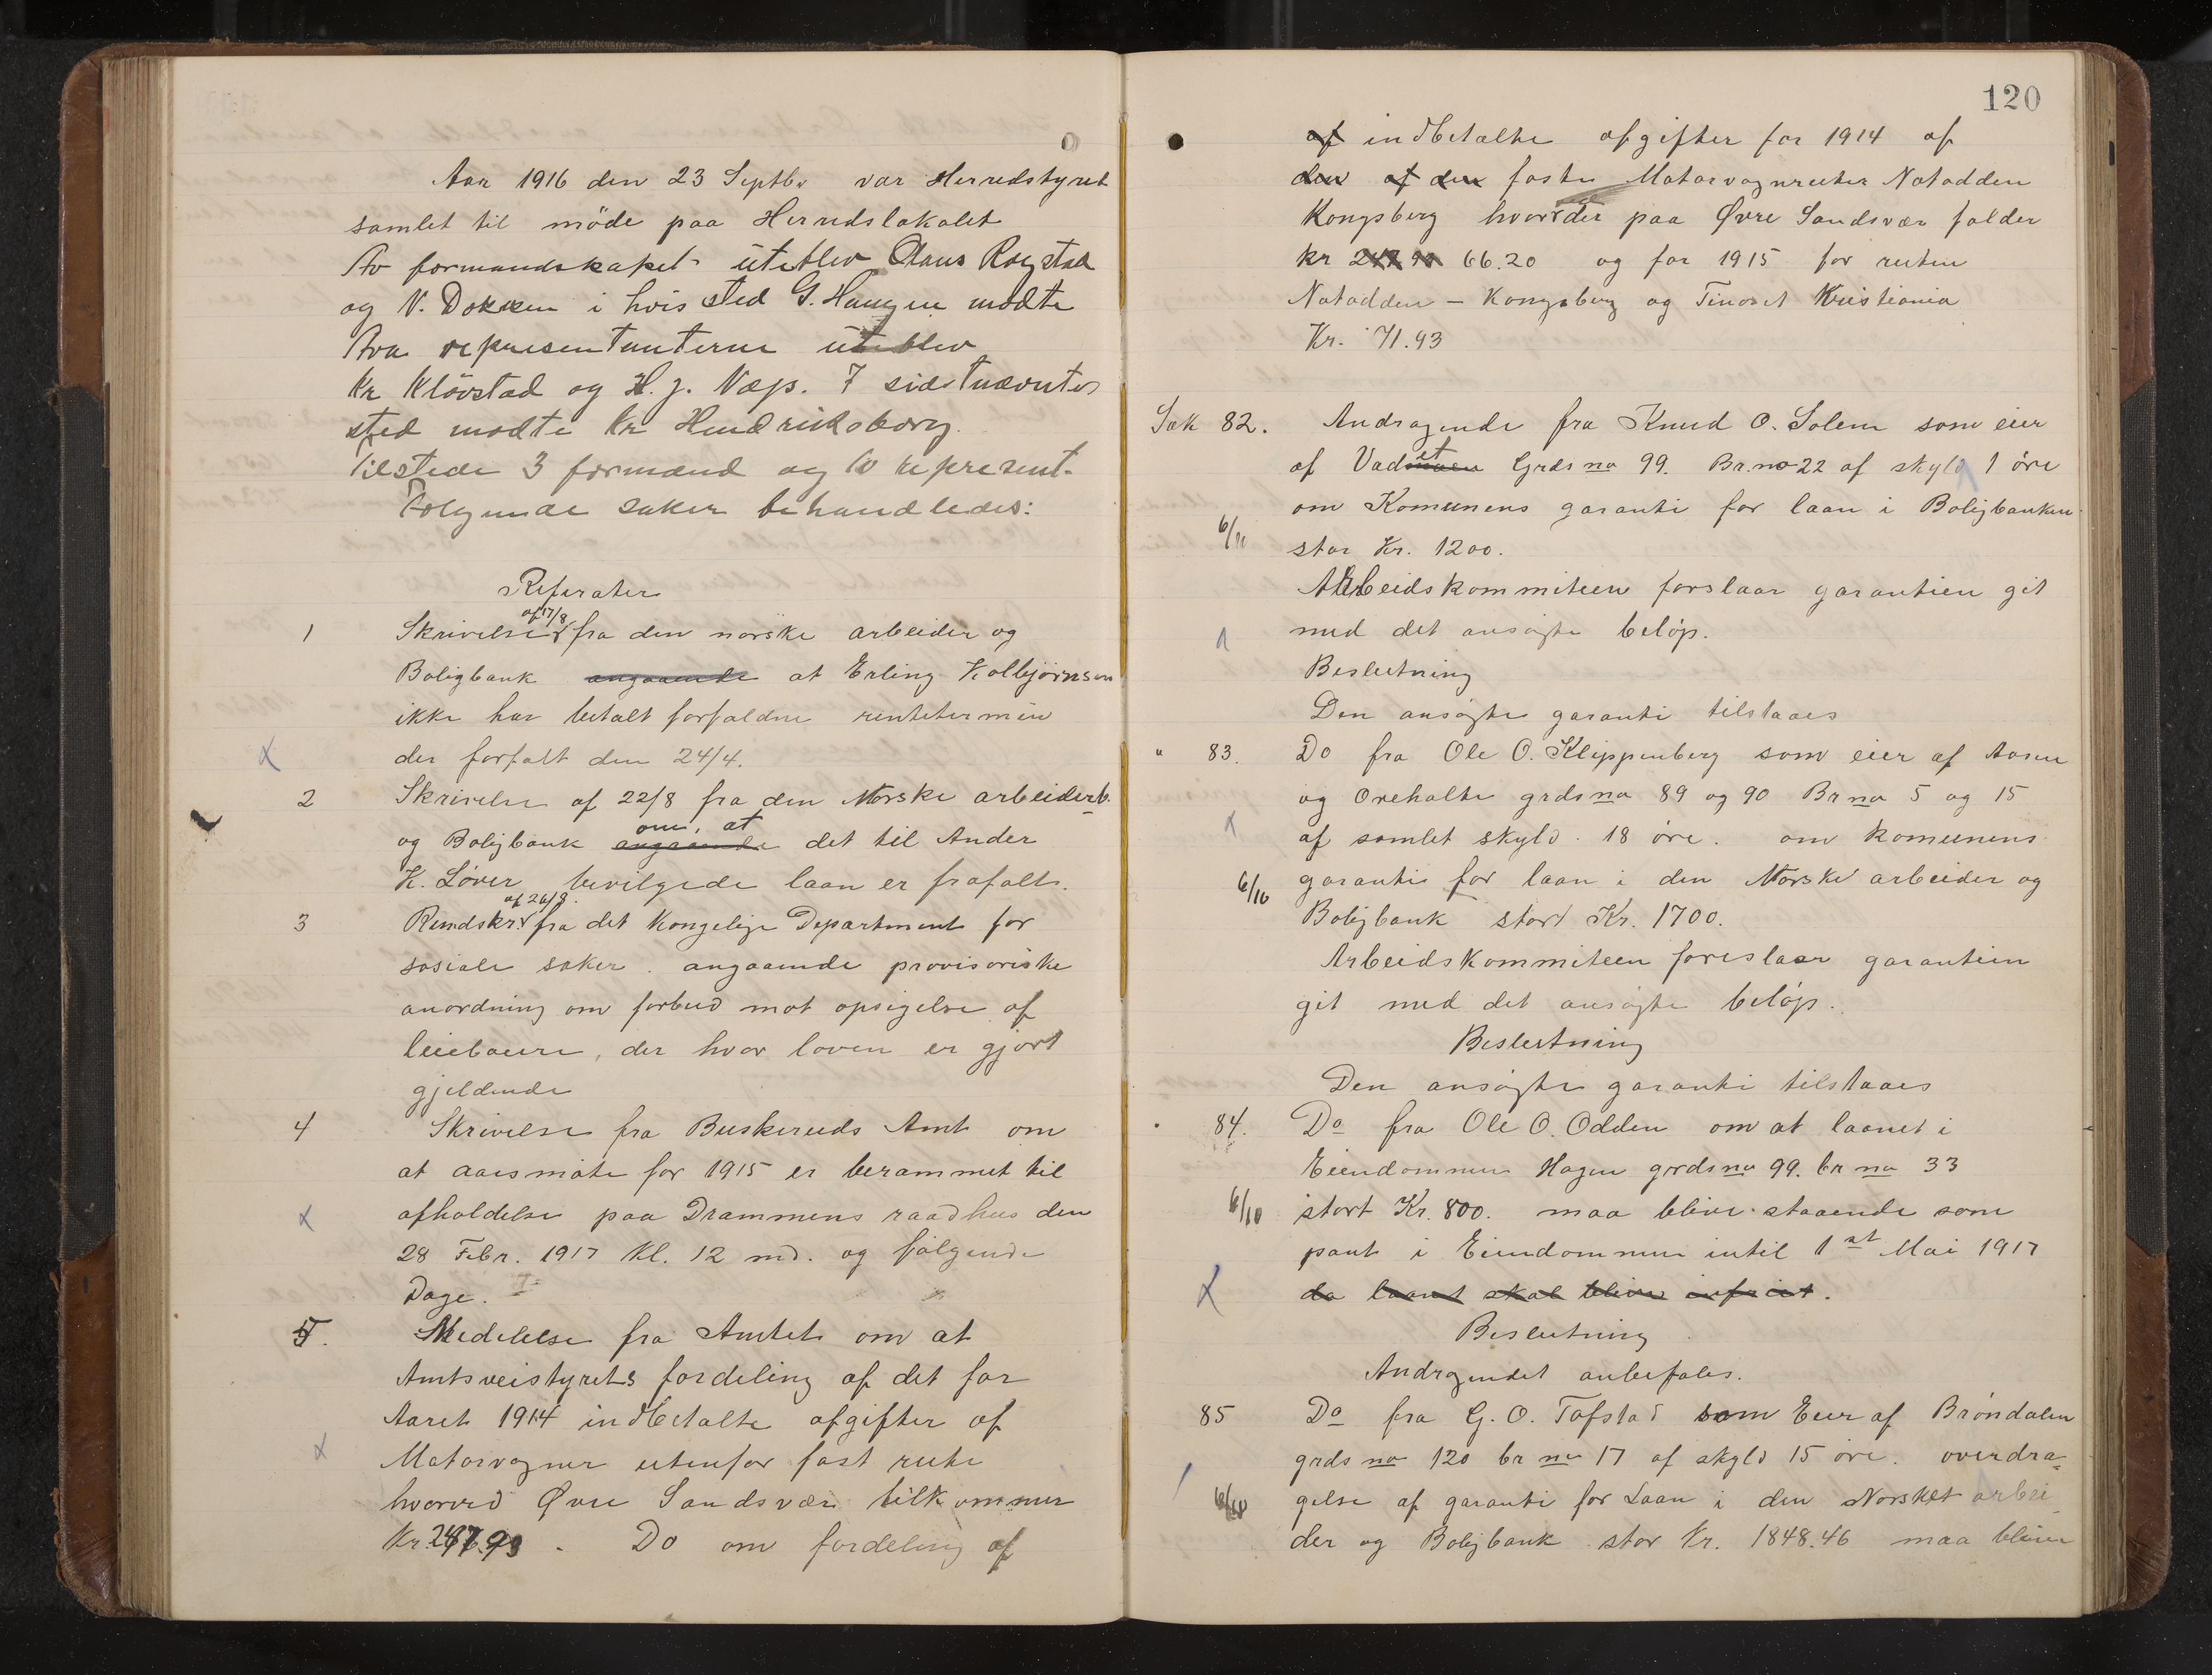 Aar 1916 den 23 Septbr var Herredstyret
samlet til möde paa Herredslokalet
Av formandskapet uteblev Claus Rogstad
og N. Dokken i hvis sted G. Haugen mødte
Ava representanterne uteblev
Kr Klövstad og H. J. Næs. I sidstnævntes
sted mødte Kr Hendriksborg.
Tilstede 3 formænd og 10 represent.
Følgende saker behandledes:
Referater
1 Skrivelse af 17/8 fra den norske arbeider og
Boligbank angaaende at Erling Kolbjørnsen
ikke har betalt forfaldne rentetermin
der forfalt den 24/4.
2 Skrivelse af 22/8 fra den Norske arbeiderb.
og Boligbank angaaende om, at det til Ander
K. Løver bevilgede laan er frafalt.
3 Rundskr. af 26/8. fra det Kongelige Department for
sosiale saker. angaaende provisoriske
anordning om forbud mot opsigelse af
leieboere, der hvor loven er gjort
gjeldende
4 Skrivelse fra Buskeruds Amt om
at aarsmøte for 1915 er berammet til
afholdelse paa Drammens raadhus den
28 Febr. 1917 Kl. 12 md. og følgende
Dage.
5. Medelelse fra Amtet om at
Amtsveistyrets fordeling af det for
Aaret 1914 indbetalte afgifter af
Motorvogner utenfor fast rute
hvorved Øvre Sandsvær tilkommer
Kr. 247.93. Do om fordeling af
120
af indbetalte afgifter for 1914 af
den af den faste Motorvognruter Notodden
Kongsberg hvorder paa Øvre Sandsvær falder
kr 66.20 og for 1915 for ruten
Notodden - Kongsberg og Tinoset Kristiania
Kr. 71.93
Sak 82. Andragende fra Knud O. Solem som eier
af Vadet Grds no 99. Br. no 22 af skyld 1 øre
om Komunens garanti for laan i Boligbanken
6/10 stor Kr. 1200.
Arbeidskommiteen forslaar garantien git
med det ansøgte beløp.
Beslutning
Den ansøgte garanti tilstaaes
" 83. Do fra Ole O. Klippenberg som eier af Aasen
og Orehalte grds no 89 og 90 Br no 5 og 15
af samlet skyld 18 øre. om komunens
6/10 garanti for laan i den Norske arbeider og
Boligbank stort Kr. 1700.
Arbeidskommiteen foreslaar garantien
git med det ansøgte beløp.
Beslutning
Den ansøgte garanti tilstaaes
" 84. Do fra Ole O. Odden om at laanet i
Eiendommen Hagen grds no 99. br no 33
6/10 stort Kr. 800. maa blive staaende som
pant i Eiendommen intil 1st Mai 1917
da laanet skal blive infriet.
Beslutning
Andragendet anbefales.
85 Do fra G. O. Tofstad som Eier af Brøndalen
grds no 120 br no 17 af skyld 15 øre. overdra=
6/10 gelse af garanti for Laan i den Norsket arbei
der og Boligbank stor Kr. 1848.46 maa blive